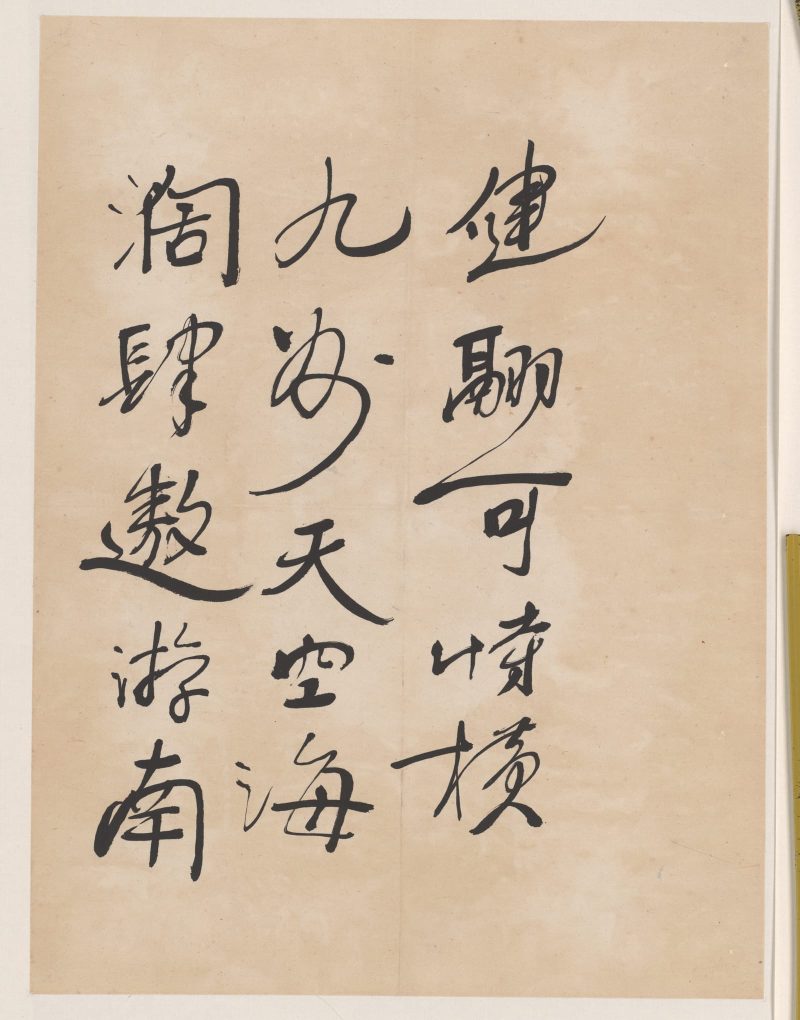 健翮可恃橫
九州天空海
濶肆遨游南